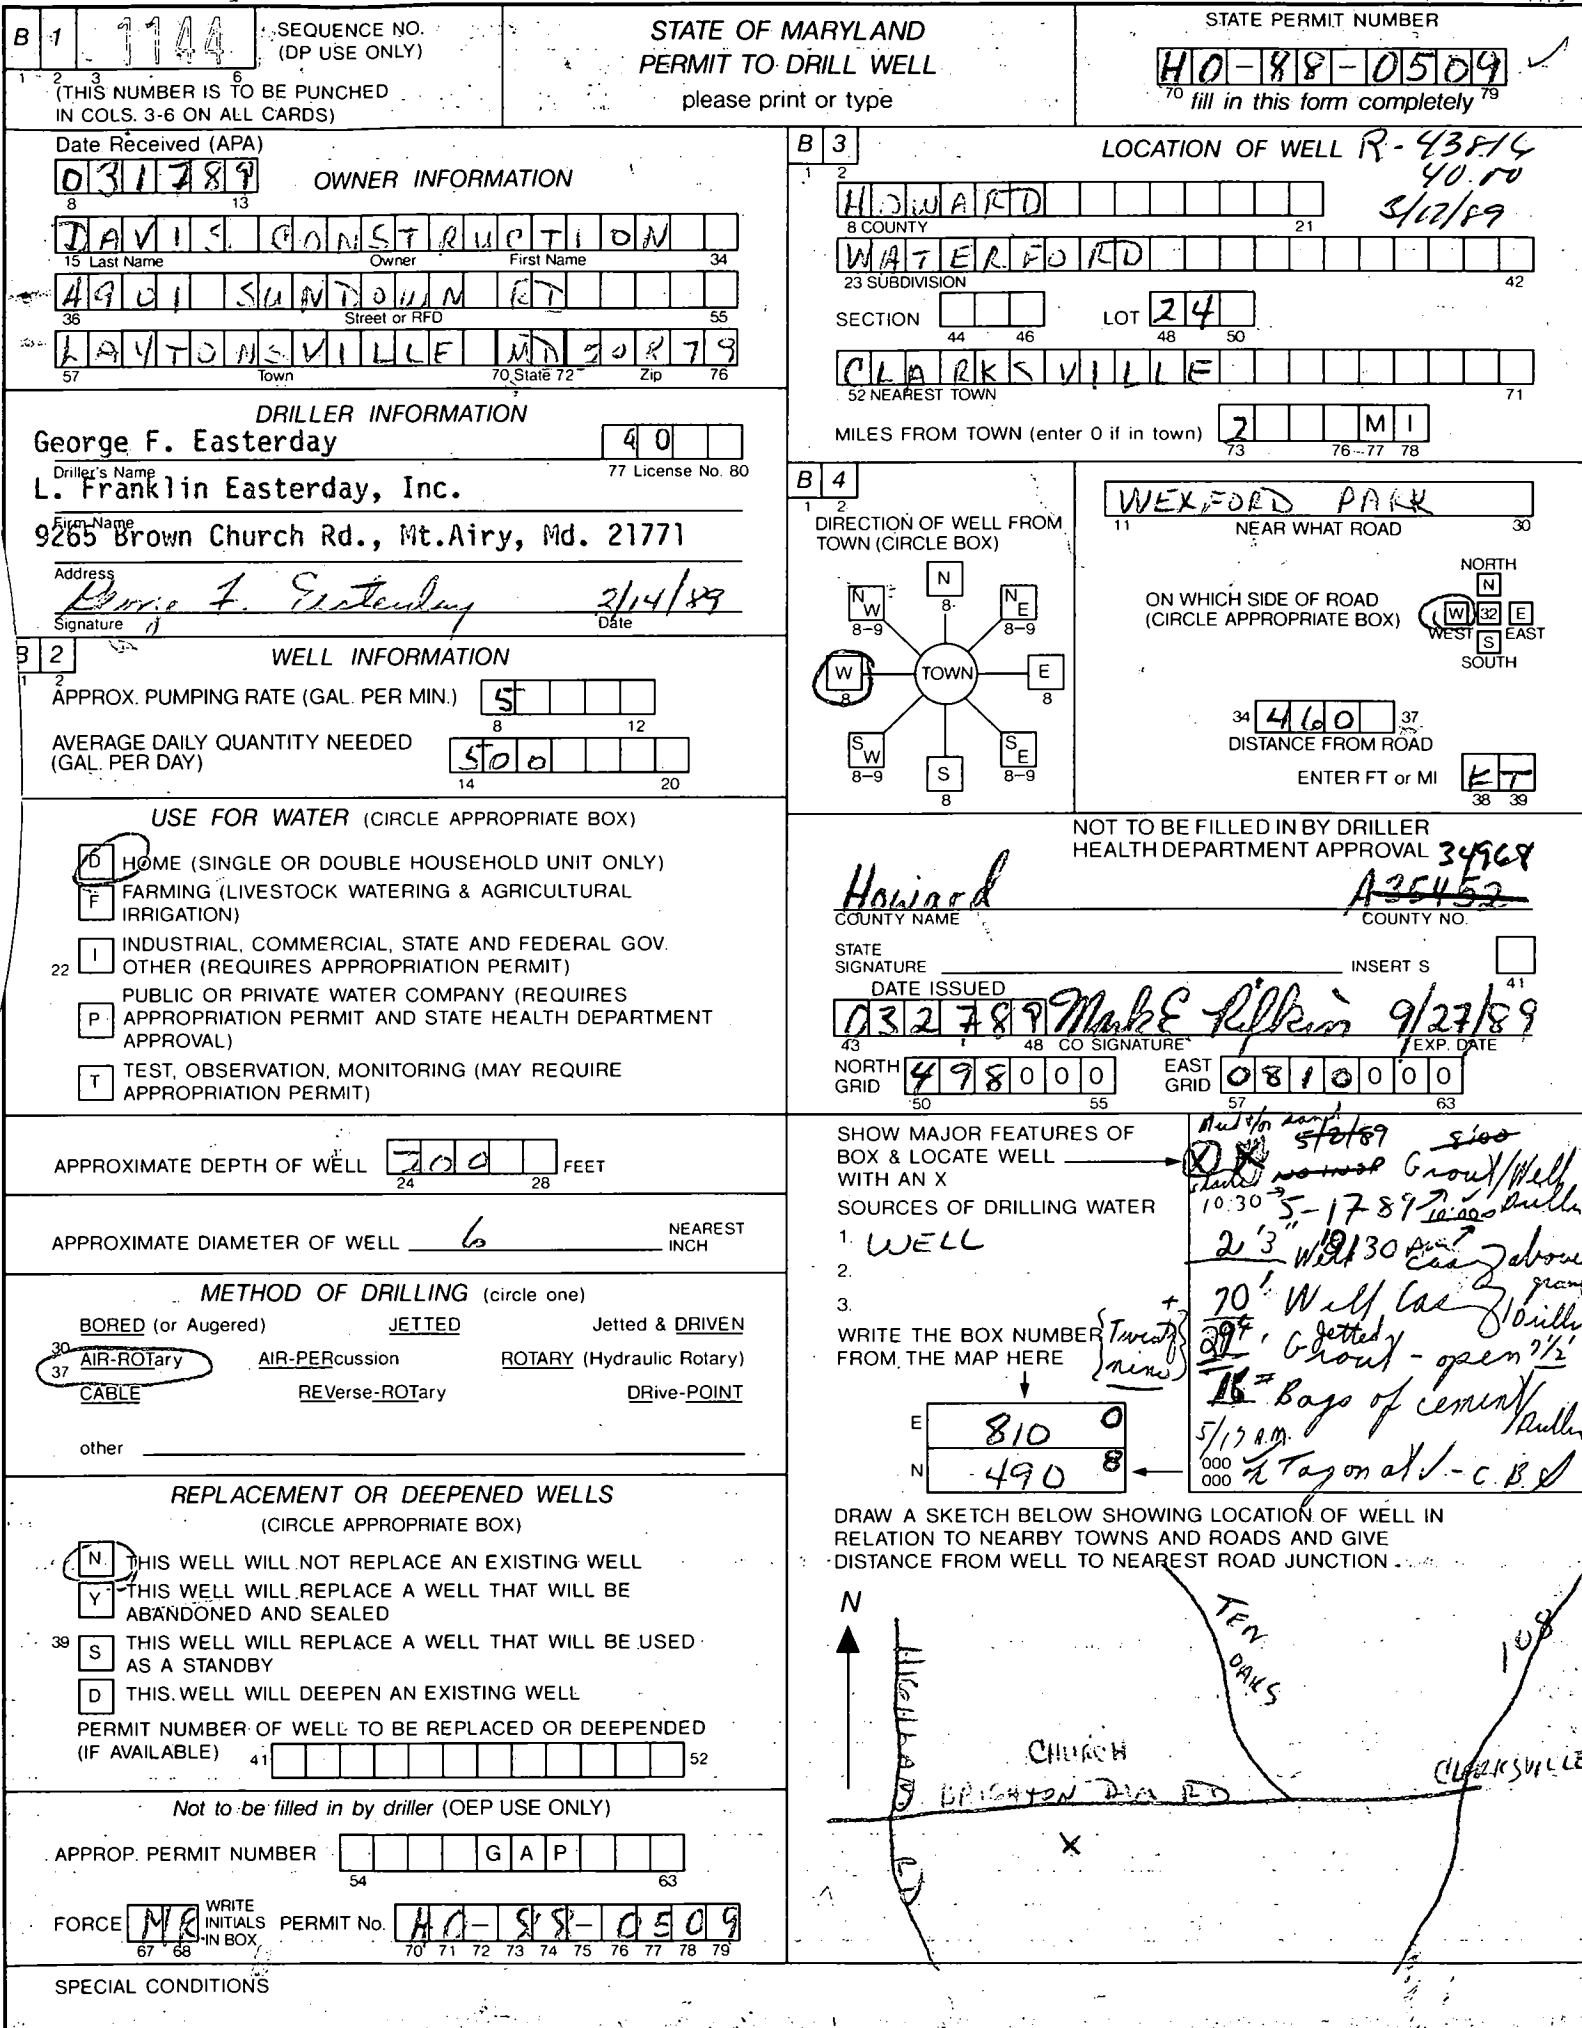 B 1 1144 SEQUENCE NO. (DP USE ONLY)
1 2 3 6
(THIS NUMBER IS TO BE PUNCHED
IN COLS. 3-6 ON ALL CARDS)
STATE OF MARYLAND
PERMIT TO DRILL WELL
please print or type
STATE PERMIT NUMBER
HO-88-0509
70 fill in this form completely 79
Date Received (APA)
031789
8 13
OWNER INFORMATION
DAVIS CONSTRUCTION
15 Last Name Owner First Name 34
4901 SUNDOWN RD
36 Street or RFD 55
LAYTONSVILLE MD 20879
57 Town 70 State 72 Zip 76
DRILLER INFORMATION
George F. Easterday 40
Driller's Name 77 License No. 80
L. Franklin Easterday, Inc.
Firm Name
9265 Brown Church Rd., Mt.Airy, Md. 21771
Address
George F. Easterday 2/14/89
Signature Date
B 2
1 2
WELL INFORMATION
APPROX. PUMPING RATE (GAL. PER MIN.) 5
8 12
AVERAGE DAILY QUANTITY NEEDED
(GAL. PER DAY) 500
14 20
USE FOR WATER (CIRCLE APPROPRIATE BOX)
D HOME (SINGLE OR DOUBLE HOUSEHOLD UNIT ONLY)
F FARMING (LIVESTOCK WATERING & AGRICULTURAL
IRRIGATION)
22 I INDUSTRIAL, COMMERCIAL, STATE AND FEDERAL GOV.
OTHER (REQUIRES APPROPRIATION PERMIT)
P PUBLIC OR PRIVATE WATER COMPANY (REQUIRES
APPROPRIATION PERMIT AND STATE HEALTH DEPARTMENT
APPROVAL)
T TEST, OBSERVATION, MONITORING (MAY REQUIRE
APPROPRIATION PERMIT)
APPROXIMATE DEPTH OF WELL 200 FEET
24 28
APPROXIMATE DIAMETER OF WELL 6 NEAREST
INCH
METHOD OF DRILLING (circle one)
BORED (or Augered) JETTED Jetted & DRIVEN
30
37
AIR-ROTary AIR-PERcussion ROTARY (Hydraulic Rotary)
CABLE REVerse-ROTary DRive-POINT
other
REPLACEMENT OR DEEPENED WELLS
(CIRCLE APPROPRIATE BOX)
N THIS WELL WILL NOT REPLACE AN EXISTING WELL
Y THIS WELL WILL REPLACE A WELL THAT WILL BE
ABANDONED AND SEALED
39 S THIS WELL WILL REPLACE A WELL THAT WILL BE USED
AS A STANDBY
D THIS WELL WILL DEEPEN AN EXISTING WELL
PERMIT NUMBER OF WELL TO BE REPLACED OR DEEPENDED
(IF AVAILABLE) 41 52
Not to be filled in by driller (OEP USE ONLY)
APPROP. PERMIT NUMBER GAP
54 63
FORCE MR WRITE INITIALS IN BOX PERMIT No. HO-88-0509
67 68 70 71 72 73 74 75 76 77 78 79
SPECIAL CONDITIONS
B 3
1 2
LOCATION OF WELL R-43816
40.00
3/17/89
HOWARD
8 COUNTY 21
WATERFORD
23 SUBDIVISION 42
SECTION LOT 24
44 46 48 50
CLARKSVILLE
52 NEAREST TOWN 71
MILES FROM TOWN (enter 0 if in town) 2 MI
73 76 77 78
B 4
1 2
DIRECTION OF WELL FROM
TOWN (CIRCLE BOX)
N 8
NW 8-9
NE 8-9
W 8
TOWN
E 8
SW 8-9
S 8
SE 8-9
WEXFORD PARK
11 NEAR WHAT ROAD 30
ON WHICH SIDE OF ROAD
(CIRCLE APPROPRIATE BOX)
NORTH
N
W 32 E
WEST EAST
S
SOUTH
34 460 37
DISTANCE FROM ROAD
ENTER FT or MI FT
38 39
NOT TO BE FILLED IN BY DRILLER
HEALTH DEPARTMENT APPROVAL 34968
Howard A35452
COUNTY NAME COUNTY NO.
STATE
SIGNATURE INSERT S
41
DATE ISSUED
032789 Mark E Rifkin 9/27/89
43 48 CO SIGNATURE EXP. DATE
NORTH GRID 498000 EAST GRID 0810000
50 55 57 63
SHOW MAJOR FEATURES OF
BOX & LOCATE WELL
WITH AN X
SOURCES OF DRILLING WATER
1. WELL
2.
3.
WRITE THE BOX NUMBER
FROM THE MAP HERE
Twenty
nine
E 810 0
N 490 8
000
000
5/2/89 8:00
Grout/Well
10:30 5-17-89
2'3" Well above
70' Well Cas
Jetted
Grout - open
Bags of cement
5/17 A.M.
Tag on - C.B.S
DRAW A SKETCH BELOW SHOWING LOCATION OF WELL IN
RELATION TO NEARBY TOWNS AND ROADS AND GIVE
DISTANCE FROM WELL TO NEAREST ROAD JUNCTION
N
HIGHLAND RD
TEN OAKS
108
CHURCH
BRIGHTON DAM RD
CLARKSVILLE
X